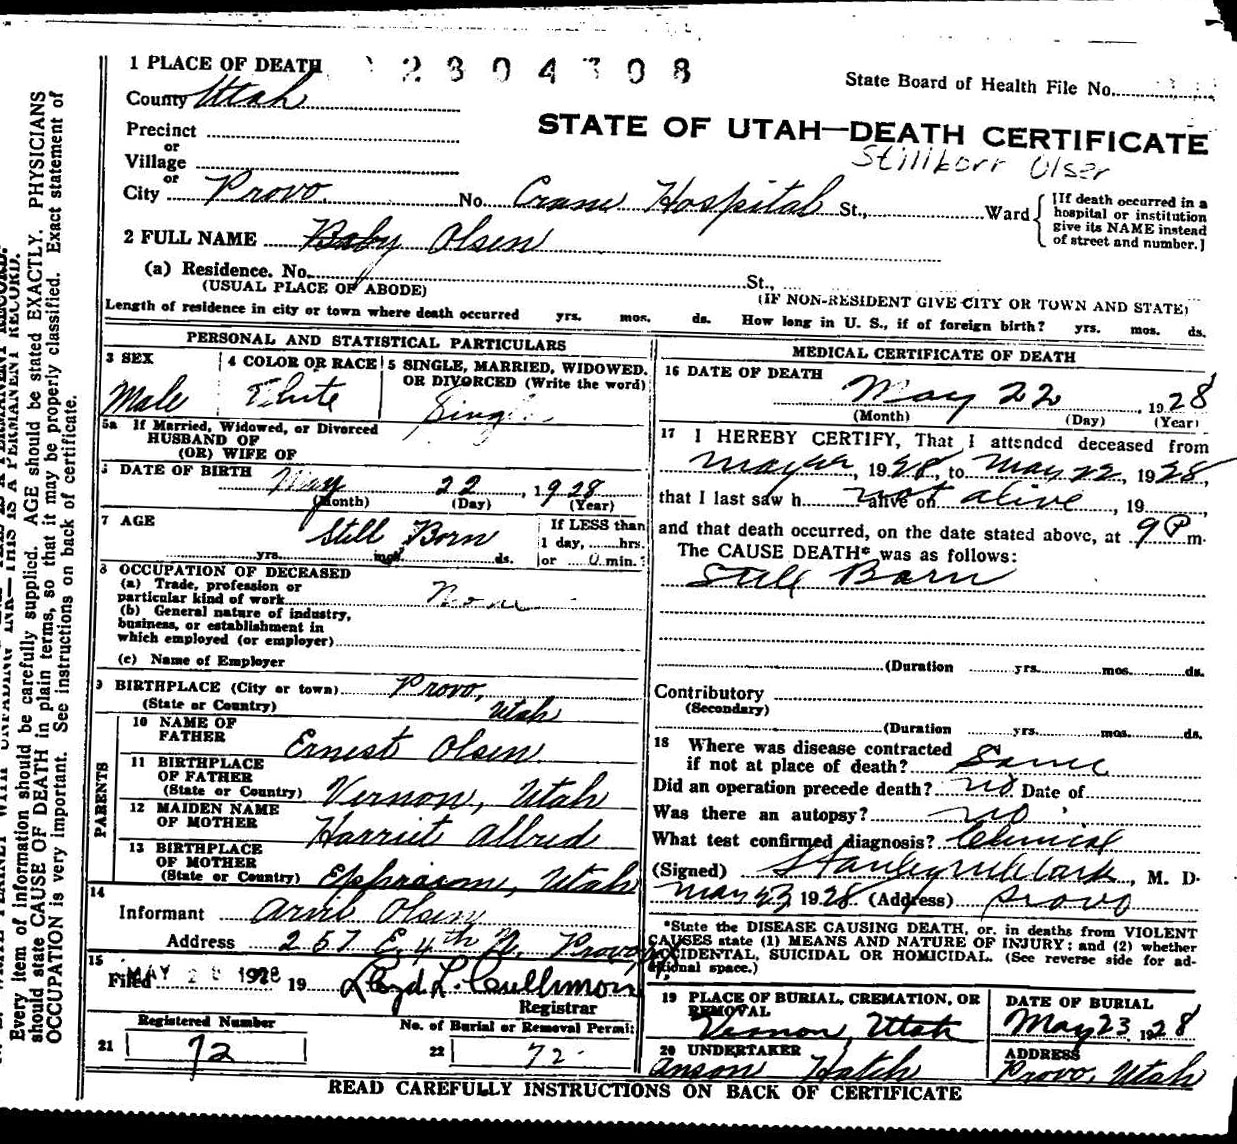 1 PLACE OF DEATH 2804308
State Board of Health File No.
County Utah
STATE OF UTAH—DEATH CERTIFICATE
Precinct
or
Village
or
City Provo No. Crane Hospital St., Ward
[If death occurred in a
hospital or institution
give its NAME instead
of street and number.]
2 FULL NAME Baby Olsen
(a) Residence. No. St.,
(USUAL PLACE OF ABODE)
(IF NON-RESIDENT GIVE CITY OR TOWN AND STATE)
Length of residence in city or town where death occurred yrs. mos. ds. How long in U. S., if of foreign birth? yrs. mos. ds.
PERSONAL AND STATISTICAL PARTICULARS
3 SEX
Male
4 COLOR OR RACE
White
5 SINGLE, MARRIED, WIDOWED.
OR DIVORCED (Write the word)
Single
5a If Married, Widowed, or Divorced
HUSBAND OF
(OR) WIFE OF
DATE OF BIRTH May 22, 1928
(Month) (Day) (Year)
7 AGE Still Born
yrs. mos. ds.
If LESS than
1 day, hrs.
or 0 min.?
8 OCCUPATION OF DECEASED
(a) Trade, profession or
particular kind of work None
(b) General nature of industry,
business, or establishment in
which employed (or employer)
(c) Name of Employer
9 BIRTHPLACE (City or town) Provo,
(State or Country) Utah
PARENTS
10 NAME OF
FATHER Ernest Olsen
11 BIRTHPLACE
OF FATHER
(State or Country) Vernon, Utah
12 MAIDEN NAME
OF MOTHER Harriet Allred
13 BIRTHPLACE
OF MOTHER
(State or Country) Ephraim, Utah
14
Informant Arvil Olsen
Address 257 E. 4th N. Provo,
15
Filed MAY 28 1928 19
Registrar
Registered Number
21 72
No. of Burial or Removal Permit
22 72
MEDICAL CERTIFICATE OF DEATH
16 DATE OF DEATH
May 22, 1928
(Month) (Day) (Year)
17 I HEREBY CERTIFY, That I attended deceased from
May 22, 1928, to May 22, 1928,
that I last saw h not alive on alive, 19
and that death occurred, on the date stated above, at 9 P m.
The CAUSE DEATH* was as follows:
Still Born
(Duration yrs. mos. ds.
Contributory
(Secondary)
(Duration yrs. mos. ds.
18 Where was disease contracted
if not at place of death? Same
Did an operation precede death? no Date of
Was there an autopsy? no
What test confirmed diagnosis? Clinical
(Signed) Stanley M Clark, M. D.
May 23 1928 (Address) Provo
*State the DISEASE CAUSING DEATH, or, in deaths from VIOLENT
CAUSES state (1) MEANS AND NATURE OF INJURY; and (2) whether
ACCIDENTAL, SUICIDAL OR HOMICIDAL. (See reverse side for ad-
ditional space.)
19 PLACE OF BURIAL, CREMATION, OR
REMOVAL
Vernon, Utah
DATE OF BURIAL
May 23, 1928
20 UNDERTAKER
Anson Hatch
ADDRESS
Provo, Utah
READ CAREFULLY INSTRUCTIONS ON BACK OF CERTIFICATE
Every item of information should be carefully supplied. AGE should be stated EXACTLY. PHYSICIANS
should state CAUSE OF DEATH in plain terms, so that it may be properly classified. Exact statement of
OCCUPATION is very important. See instructions on back of certificate.